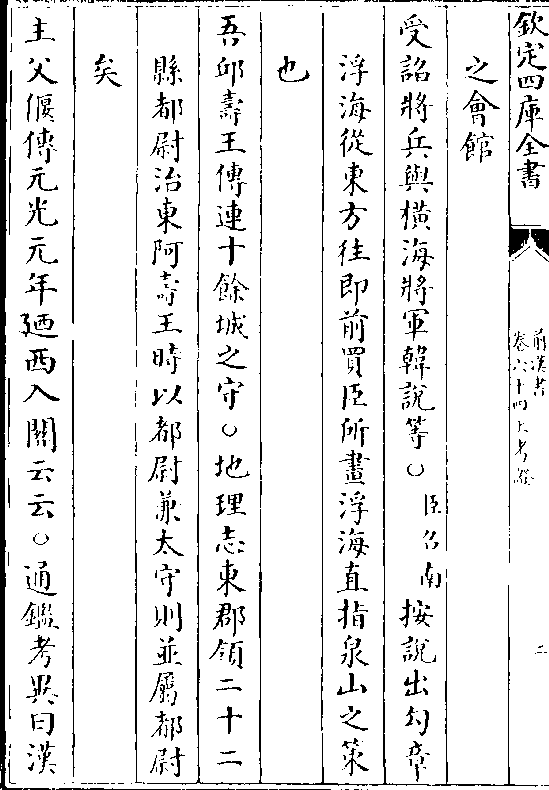 欽定四庫全書
前漢書
卷六十四上考證
二
之會館
受詔將兵與橫海將軍韓說等○臣召南按說出勾章
浮海從東方往即前買臣所畫浮海直指泉山之策
也
吾邱壽王傳連十餘城之守○地理志東郡領二十二
縣都尉治東阿壽王時以都尉兼太守則並屬都尉
矣
主父偃傳元光元年廼西入關云云○通鑑考異曰漢